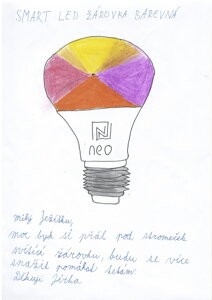 SMART LED ŽÁROVKA BAREVNÁ
N
neo
milý Ježíšku,
moc bych si přál pod stromeček
svítící žárovku, budu se více
snažit pomáhat
Děkuji Jirka